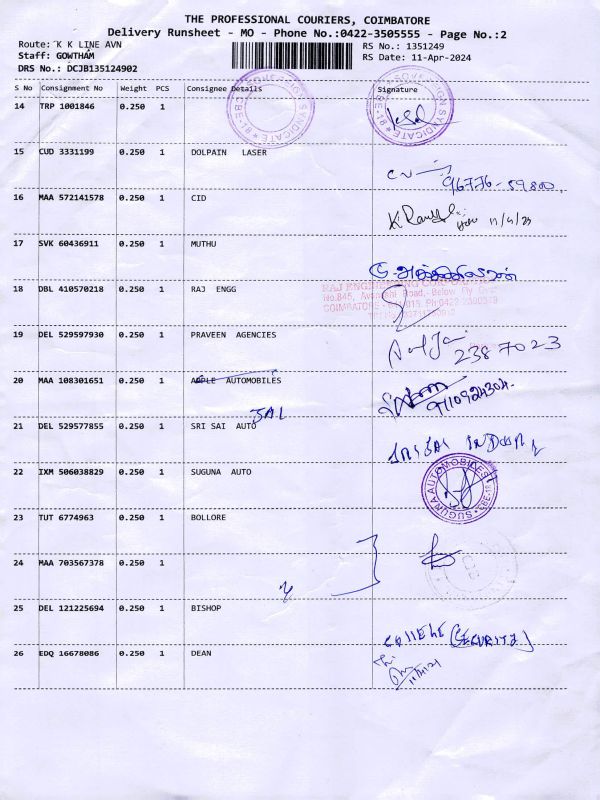 THE PROFESSIONAL COURIERS, COIMBATORE
Delivery Runsheet - MO - Phone No.:0422-3505555 - Page No.:2
Route: K K LINE AVN RS No.: 1351249
Staff: GOWTHAM RS Date: 11-Apr-2024
DRS No.: DCJB135124902
S No Consignment No Weight PCS Consignee Details Signature
14 TRP 1001846 0.250 1
15 CUD 3331199 0.250 1 DOLPAIN LASER
96776-59800
16 MAA 572141578 0.250 1 CID
17 SVK 60436911 0.250 1 MUTHU
18 DBL 410570218 0.250 1 RAJ ENGG
RAJ ENGINEERING CORPORATION
19 DEL 529597930 0.250 1 PRAVEEN AGENCIES
2387023
20 MAA 108301651 0.250 1 APPLE AUTOMOBILES
9110924304
SAI
21 DEL 529577855 0.250 1 SRI SAI AUTO
22 IXM 506038829 0.250 1 SUGUNA AUTO
SUGUNA AUTOMOBILES
CBE-18
23 TUT 6774963 0.250 1 BOLLORE
24 MAA 703567378 0.250 1
25 DEL 121225694 0.250 1 BISHOP
COLLEGE (SECURITY)
26 EDQ 16678086 0.250 1 DEAN